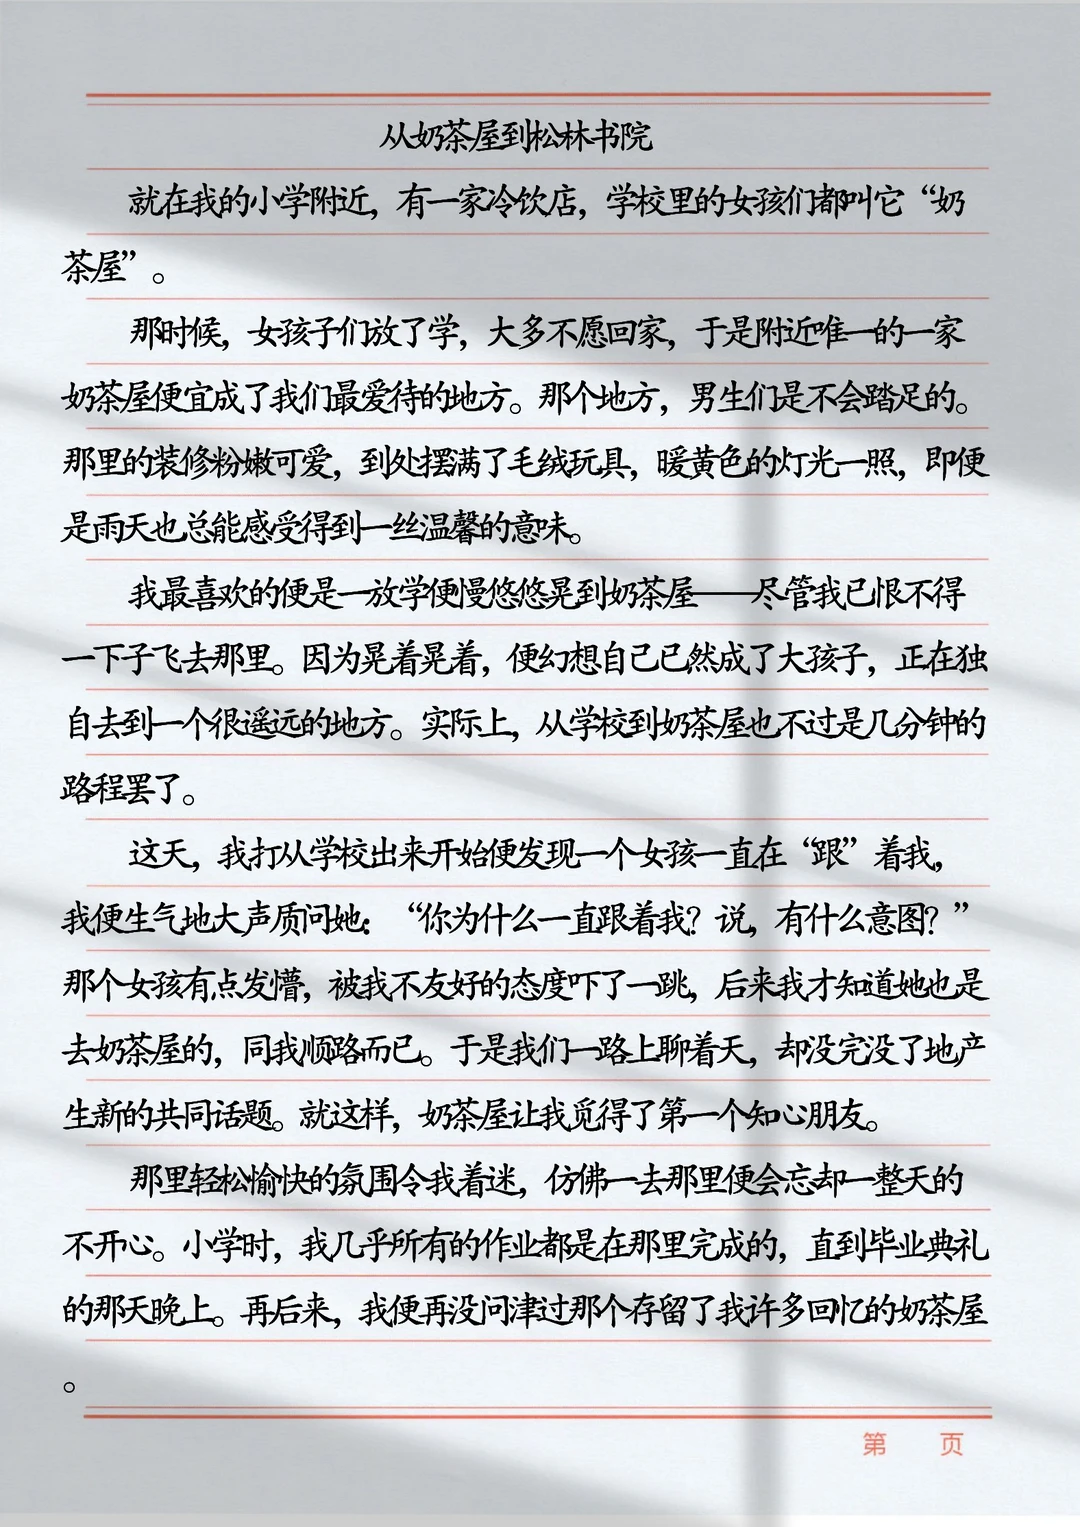 从奶茶屋到松林书院
就在我的小学附近，有一家冷饮店，学校里的女孩们都叫它“奶
茶屋”。
那时候，女孩子们放了学，大多不愿回家，于是附近唯一的一家
奶茶屋便宜成了我们最爱待的地方。那个地方，男生们是不会踏足的。
那里的装修粉嫩可爱，到处摆满了毛绒玩具，暖黄色的灯光一照，即便
是雨天也总能感受得到一丝温馨的意味。
我最喜欢的便是一放学便慢悠悠晃到奶茶屋——尽管我已恨不得
一下子飞去那里。因为晃着晃着，便幻想自己已然成了大孩子，正在独
自去到一个很遥远的地方。实际上，从学校到奶茶屋也不过是几分钟的
路程罢了。
这天，我打从学校出来开始便发现一个女孩一直在“跟”着我，
我便生气地大声质问她：“你为什么一直跟着我？说，有什么意图？”
那个女孩有点发懵，被我不友好的态度吓了一跳，后来我才知道她也是
去奶茶屋的，同我顺路而已。于是我们一路上聊着天，却没完没了地产
生新的共同话题。就这样，奶茶屋让我觅得了第一个知心朋友。
那里轻松愉快的氛围令我着迷，仿佛一去那里便会忘却一整天的
不开心。小学时，我几乎所有的作业都是在那里完成的，直到毕业典礼
的那天晚上。再后来，我便再没问津过那个存留了我许多回忆的奶茶屋
。
第 页